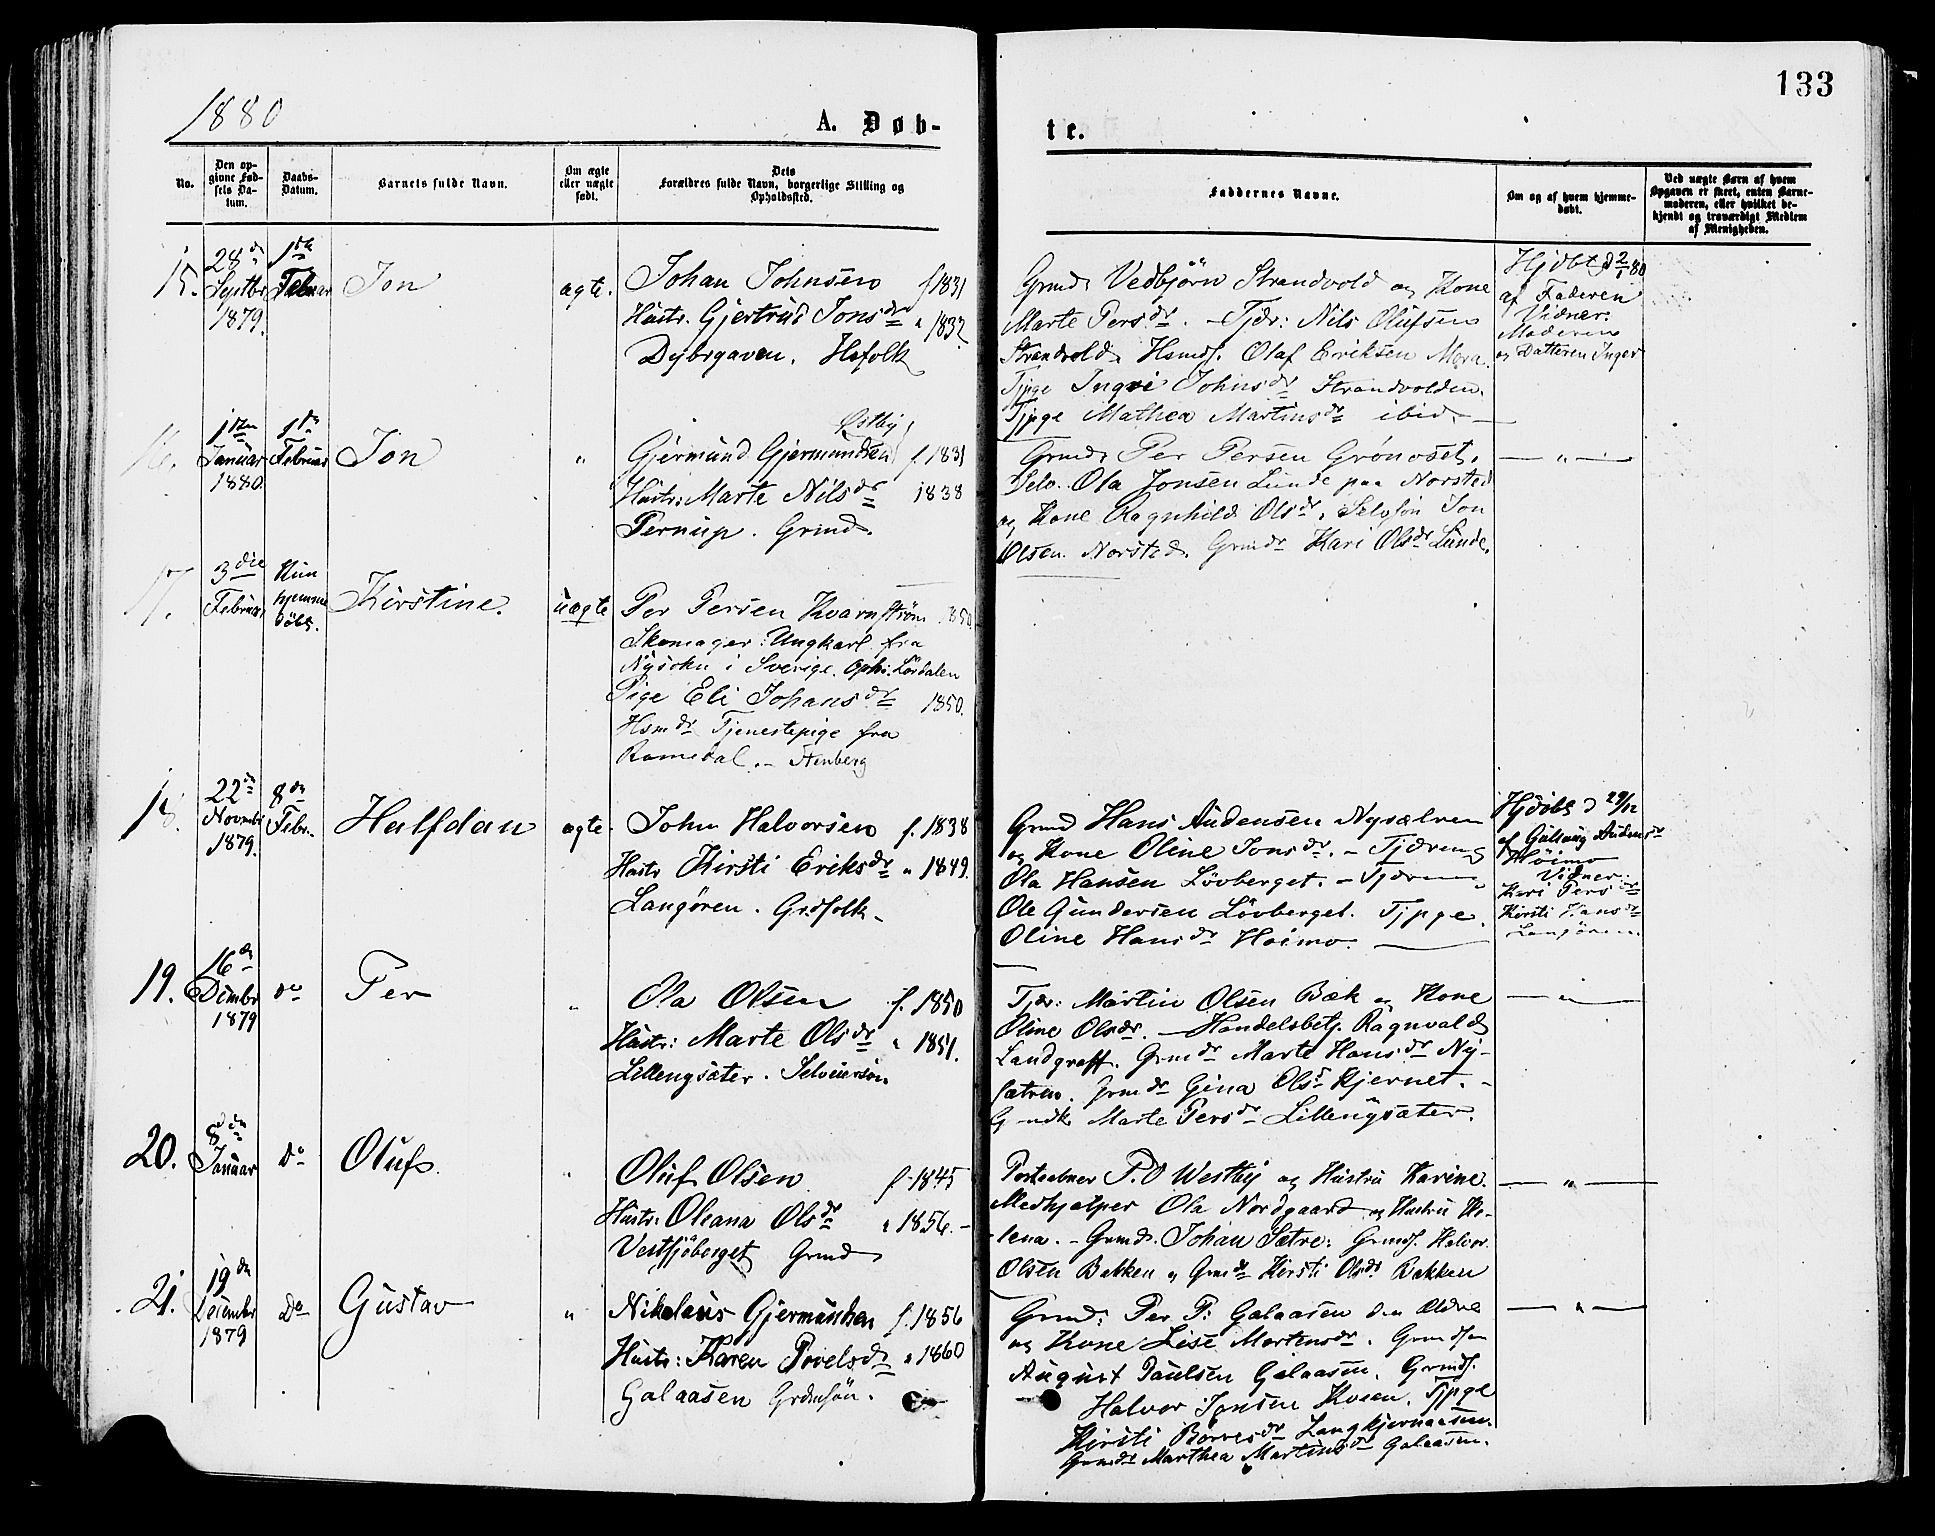 1880
133
A. Døb-
te.
No.
Den op-
givne Fød-
sels Da-
tum.
Daabs-
Datum.
Barnets fulde Navn.
Om ægte
eller uægte
født.
Dets
Forældres fulde Navn, borgerlige Stilling og
Opholdssted.
Faddernes Navne.
Om og af hvem hjemme-
døbt.
Ved uægte Børn af hvem
Opgaven er skeet, enten Barne-
moderen, eller hvilket be-
kjendt og troværdigt Medlem
af Menigheden.
15.
28de
Septbr
1879.
1ste
Februar
Jon
ægte.
Johan Johnsen f. 1831
Hustr. Gjertrud Jonsdr " 1832
Dybsgaven. Hsfolk
Grmd. Vedbjörn Strandvold og Kone
Marte Persdr. - Tjdr: Nils Olufsen
Strandvold. Hsmds. Olaf Eriksen Mora.
Tjpge Johnsdr Strandvolden.
Tjpge Mathea Martinsdr ibid. -
Hjdbt d 2/1 80
af Faderen
Vidner:
Moderen
og Datteren Inger
16.
1ste
Januar
1880.
1ste
Februar
Jon
"
Østby
Gjermund Gjermundsen f. 1831
Hustr: Marte Nilsdr 1838
Pernup. Grmd.
Grmd. Per Persen Grønoset.
Selv. Ola Jonsen Lunde paa Norsted
og Kone Ragnhild Olsdr. Selvsön Jon
Olsen Norsted. Grmdr Kari Olsdr Lunde.
— " —
17.
3die
Februar
Kun
hjemme
døbt.
Kirstine.
uægte
Per Persen Kvarnström 1850
Skomager: Ungkarl fra
Nysokn i Sverige. Oph: Lördalen
Pige Eli Johansdr 1850.
Hsmdr Tjenestepige fra
Romedal. - Stenberg
18.
22de
Novmbr
1879.
8de
Febr.
Halfdan
ægte.
John Halvorsen f. 1838
Hustr Kirsti Eriksdr " 1849.
Langören. Grdfolk
Grmd Hans Audensen Nysælven
og Kone Oline Jonsdr. - Tjdreng
Ola Hansen Lövberget. -
Ole Gundersen Lövberget. Tjpge.
Oline Hansdr Höimo.
Hjdöbt d 29/12
af Audensdr
Höimo
Vidner:
Kari Persdr
Kirsti Hansdr
Langören.
19.
16de
Dcmbr
1879
do
Per
"
Ola Olsen f. 1850
Hustr: Marte Olsdr " 1851.
Lillengsæter. Selveiersön
Tjdr: Martin Olsen Bæk og Kone
Oline Olsdr. - Handelsbetj. Ragnvald
Landgraff. Grmdr Marte Hansdr Ny-
sætren. Grmdr Gina Olsdr Kjernet. -
Marte Persdr Lillengsæter.
— " —
20.
8de
Januar
Do
Oluf.
"
Oluf Olsen f. 1845
Hustr: Oleana Olsdr " 1856. -
Vestsjöberget Grmd
Postaabner P. O Westby og Hustru Karine.
Medhjælper Ola Nordgaard og Hustru He-
lena. - Grmd. Johan Sætre: Grmds. Halvor
Olsen Bakken og Grmdr Kirsti Olsdr Bakken
— " —
21.
19de
December
1879
Do
Gustav
"
Nikolaus Gjermundsen f. 1856
Hustr: Karen Povelsdr " 1860
Galaasen Grdmsön.
Grmd: Per P: Galaasen den Ældre
og Kone Lise Mortensdr. Grmdsøn
August Paulsen Galaasen. Grmds.
Halvor Jonsen Tjpge
Kirsti Börresdr Langkjernaasen.
Grmdr Marthea Martinsdr Galaasen.
— " —